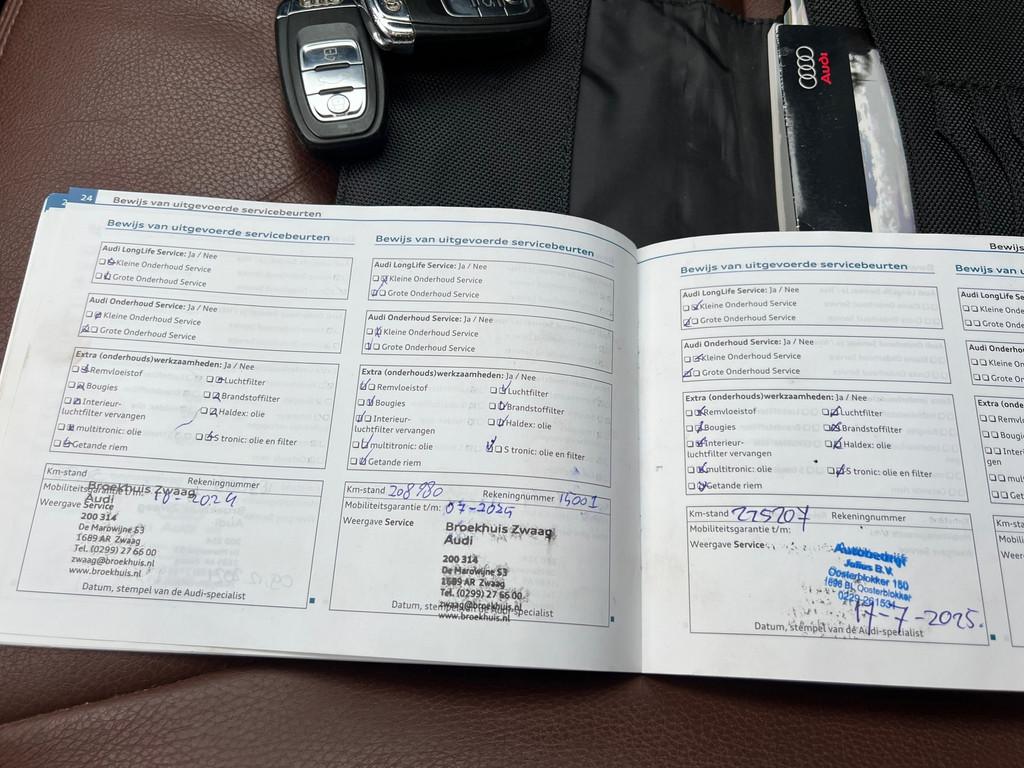 Audi
24
Bewijs van uitgevoerde servicebeurten
Bewijs van uitgevoerde servicebeurten
Audi LongLife Service: Ja / Nee
Kleine Onderhoud Service
Grote Onderhoud Service
Audi Onderhoud Service: Ja / Nee
Kleine Onderhoud Service
Grote Onderhoud Service
Extra (onderhouds)werkzaamheden: Ja / Nee
Remvloeistof
Luchtfilter
Bougies
Brandstoffilter
Interieur-
luchtfilter vervangen
Haldex: olie
multitronic: olie
S tronic: olie en filter
Getande riem
Km-stand
Rekeningnummer
Mobiliteitsgarantie t/m: 10-2024
Weergave Service
Broekhuis Zwaag
Audi
200 314
De Marowijne 53
1689 AR Zwaag
Tel. (0299) 27 66 00
zwaag@broekhuis.nl
www.broekhuis.nl
Datum, stempel van de Audi-specialist
Bewijs van uitgevoerde servicebeurten
Audi LongLife Service: Ja / Nee
Kleine Onderhoud Service
Grote Onderhoud Service
Audi Onderhoud Service: Ja / Nee
Kleine Onderhoud Service
Grote Onderhoud Service
Extra (onderhouds)werkzaamheden: Ja / Nee
Remvloeistof
Luchtfilter
Bougies
Brandstoffilter
Interieur-
luchtfilter vervangen
Haldex: olie
multitronic: olie
S tronic: olie en filter
Getande riem
Km-stand 208980
Rekeningnummer 15001
Mobiliteitsgarantie t/m: 07-2025
Weergave Service
Broekhuis Zwaag
Audi
200 314
De Marowijne 53
1689 AR Zwaag
Tel. (0299) 27 66 00
zwaag@broekhuis.nl
www.broekhuis.nl
Datum, stempel van de Audi-specialist
Bewijs van uitgevoerde servicebeurten
Audi LongLife Service: Ja / Nee
Kleine Onderhoud Service
Grote Onderhoud Service
Audi Onderhoud Service: Ja / Nee
Kleine Onderhoud Service
Grote Onderhoud Service
Extra (onderhouds)werkzaamheden: Ja / Nee
Remvloeistof
Luchtfilter
Bougies
Brandstoffilter
Interieur-
luchtfilter vervangen
Haldex: olie
multitronic: olie
S tronic: olie en filter
Getande riem
Km-stand 225207
Rekeningnummer
Mobiliteitsgarantie t/m:
Weergave Service
Autobedrijf
Julius B.V.
Oosterblokker 150
1696 BL Oosterblokker
17-7-2025.
Datum, stempel van de Audi-specialist
Audi LongLife Se
Kleine Onder
Grote Onder
Audi Onderho
Kleine Onder
Grote On
Km-stand